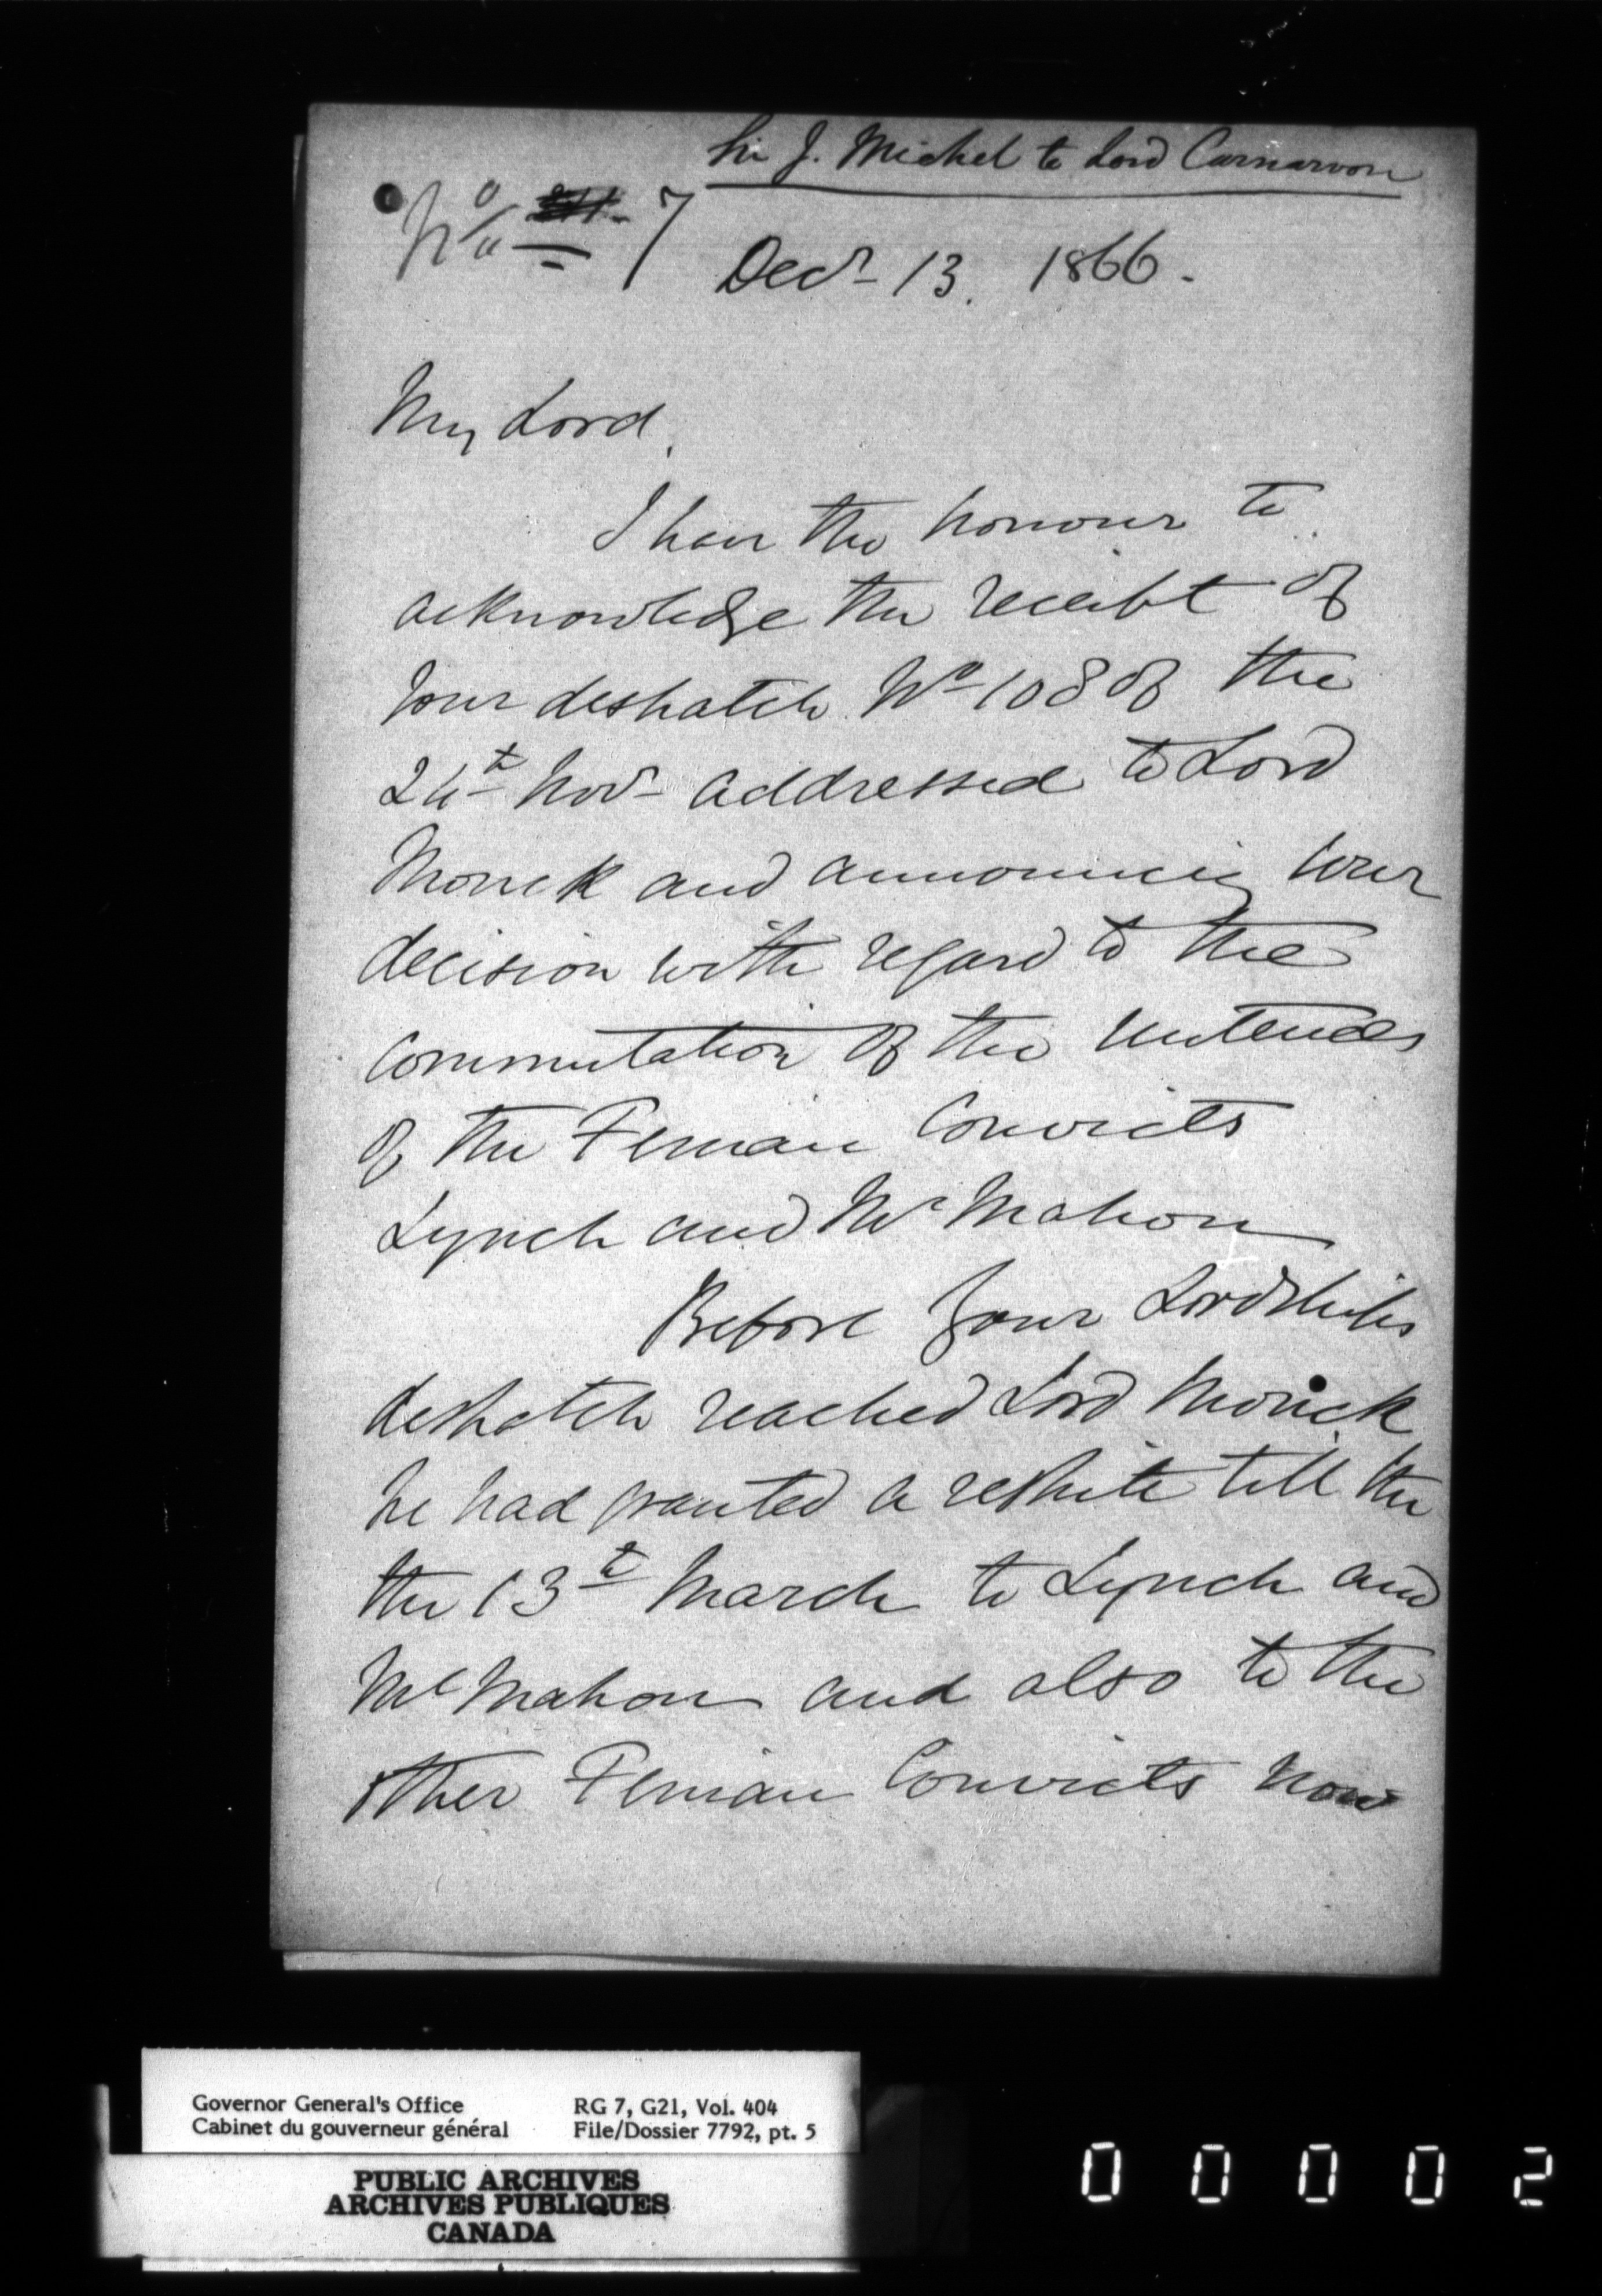 Sir J. Michel to Lord Carnarvon
No 7
Decr 13. 1866.
My Lord,
I have the honour to
acknowledge the receipt of
your despatch No 108 of the
24th Novr addressed to Lord
Monck and announcing your
decision with regard to the
commutation of the sentences
of the Fenian Convicts
Lynch and McMahon
Before Your Lordships
despatch reached Lord Monck
he had granted a respite till the
the 13th March to Lynch and
McMahon and also to the
other Fenian Convicts now
Governor General's Office RG 7, G21, Vol. 404
Cabinet du gouverneur général File/Dossier 7792, pt. 5
PUBLIC ARCHIVES
ARCHIVES PUBLIQUES
CANADA
00002